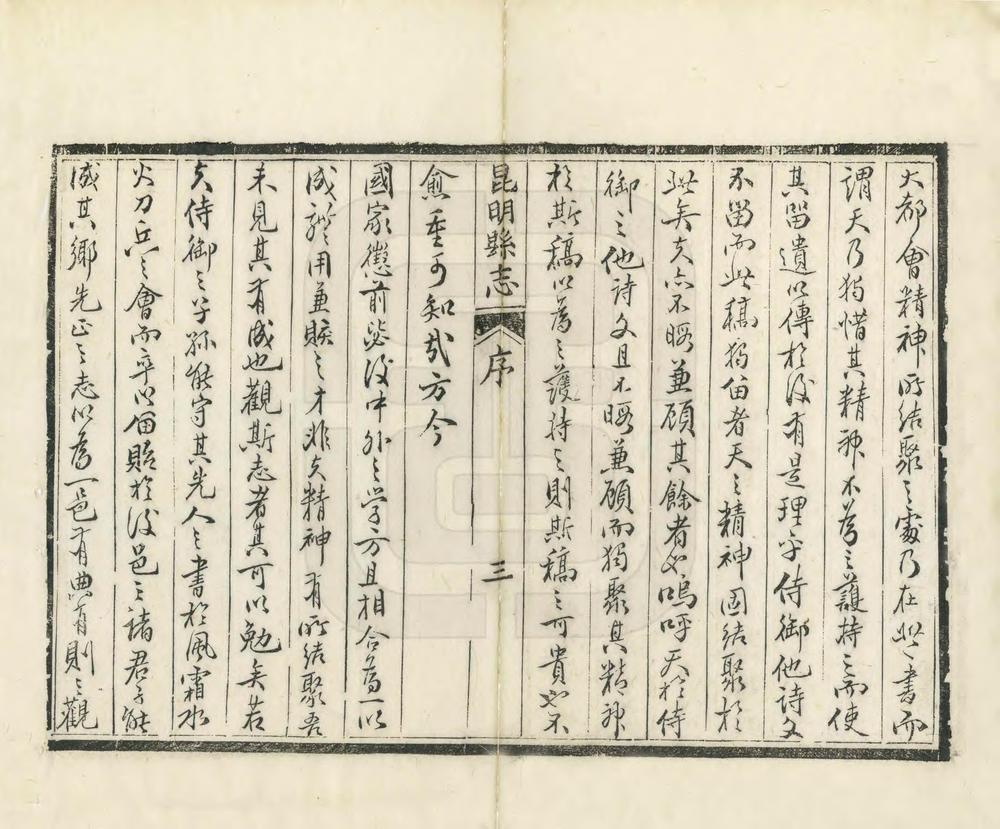 大都會精神所結聚之處乃在此書而
謂天乃獨惜其精神不為之護持之而使
其留遺以傳於後有是理乎侍御他詩文
不留而此稿獨留者天之精神固結聚於
此矣天亦不暇兼顧其餘者也嗚呼天於侍
御之他詩文且不暇兼顧而獨聚其精神
於斯稿以為之護持之則斯稿之可貴也不
昆明縣志 序 三
愈重可知哉方今
國家懲前毖後中外之学方且相合為一以
成體用兼賅之才非天精神有所結聚吾
未見其有成也觀斯志者其可以勉矣若
夫侍御之子孫能守其先人之書於風霜水
火刀兵之會而卒以留貽於後邑之諸君子能
成其鄉先正之志以為一邑有典有則之觀